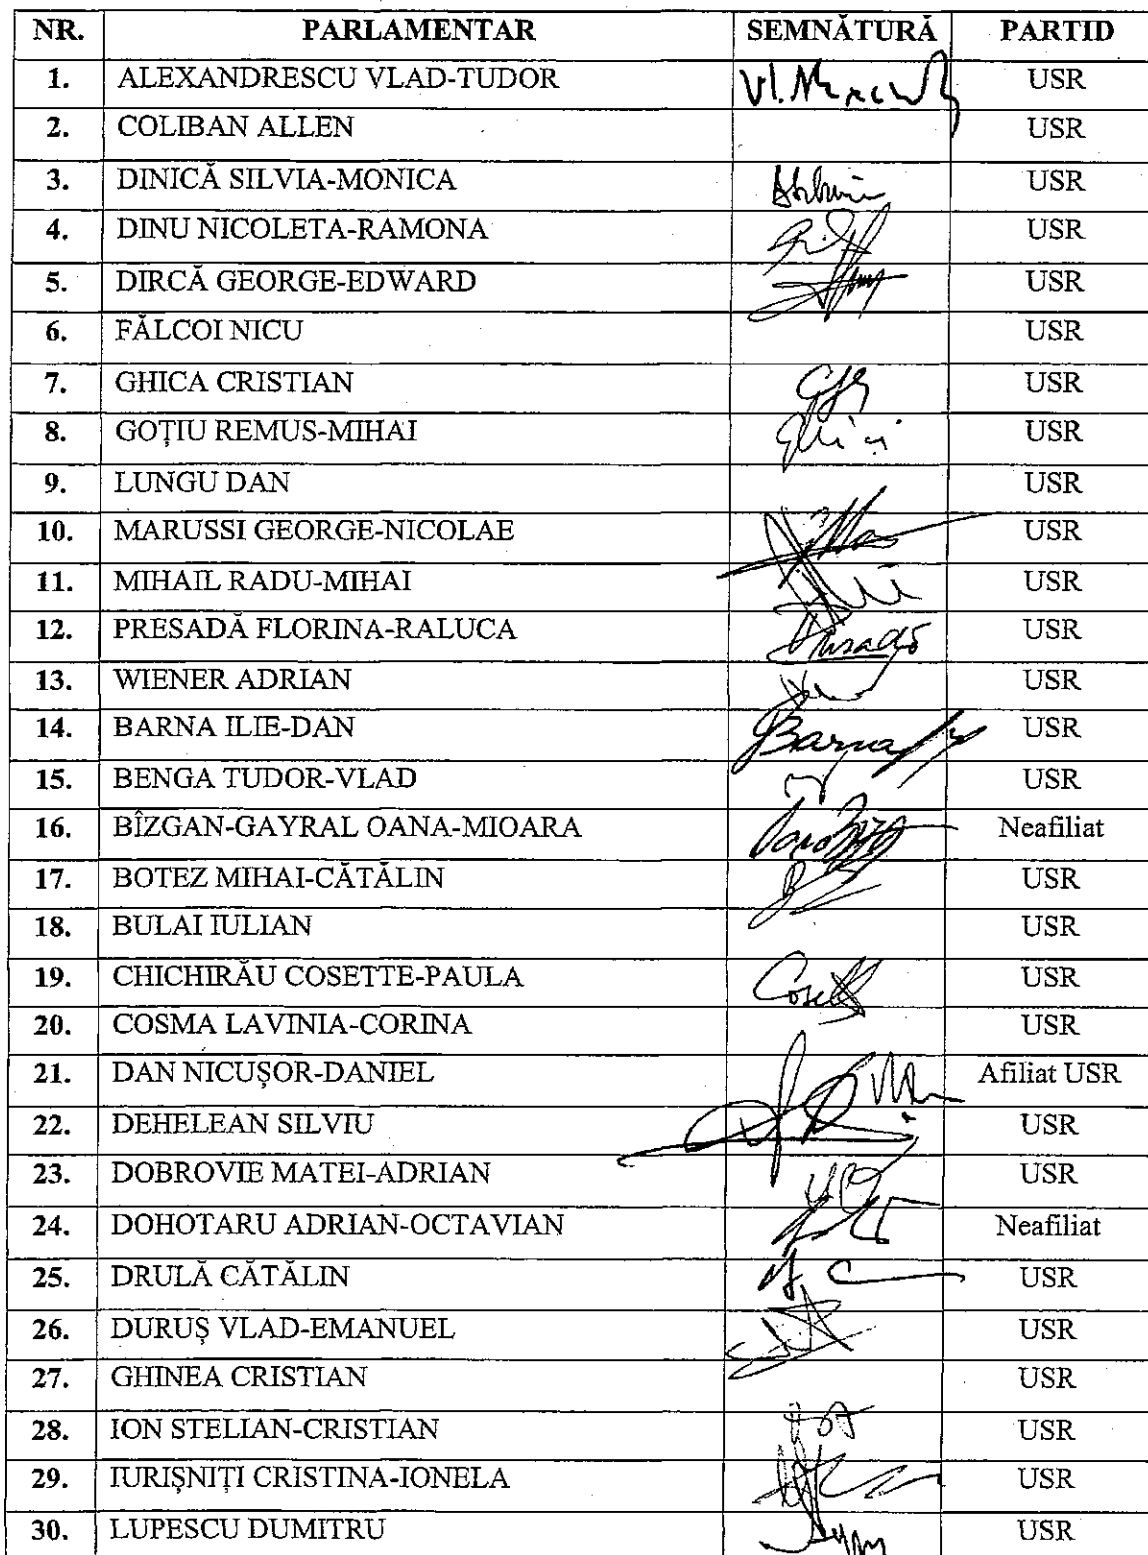 NR. PARLAMENTAR SEMNĂTURĂ PARTID
1. ALEXANDRESCU VLAD-TUDOR USR
2. COLIBAN ALLEN USR
3. DINICĂ SILVIA-MONICA USR
4. DINU NICOLETA-RAMONA USR
5. DIRCĂ GEORGE-EDWARD USR
6. FĂLCOI NICU USR
7. GHICA CRISTIAN USR
8. GOȚIU REMUS-MIHAI USR
9. LUNGU DAN USR
10. MARUSSI GEORGE-NICOLAE USR
11. MIHAIL RADU-MIHAI USR
12. PRESADĂ FLORINA-RALUCA USR
13. WIENER ADRIAN USR
14. BARNA ILIE-DAN Barna USR
15. BENGA TUDOR-VLAD USR
16. BÎZGAN-GAYRAL OANA-MIOARA Neafiliat
17. BOTEZ MIHAI-CĂTĂLIN USR
18. BULAI IULIAN USR
19. CHICHIRĂU COSETTE-PAULA USR
20. COSMA LAVINIA-CORINA USR
21. DAN NICUȘOR-DANIEL Afiliat USR
22. DEHELEAN SILVIU USR
23. DOBROVIE MATEI-ADRIAN USR
24. DOHOTARU ADRIAN-OCTAVIAN Neafiliat
25. DRULĂ CĂTĂLIN USR
26. DURUȘ VLAD-EMANUEL USR
27. GHINEA CRISTIAN USR
28. ION STELIAN-CRISTIAN USR
29. IURIȘNIȚI CRISTINA-IONELA USR
30. LUPESCU DUMITRU USR